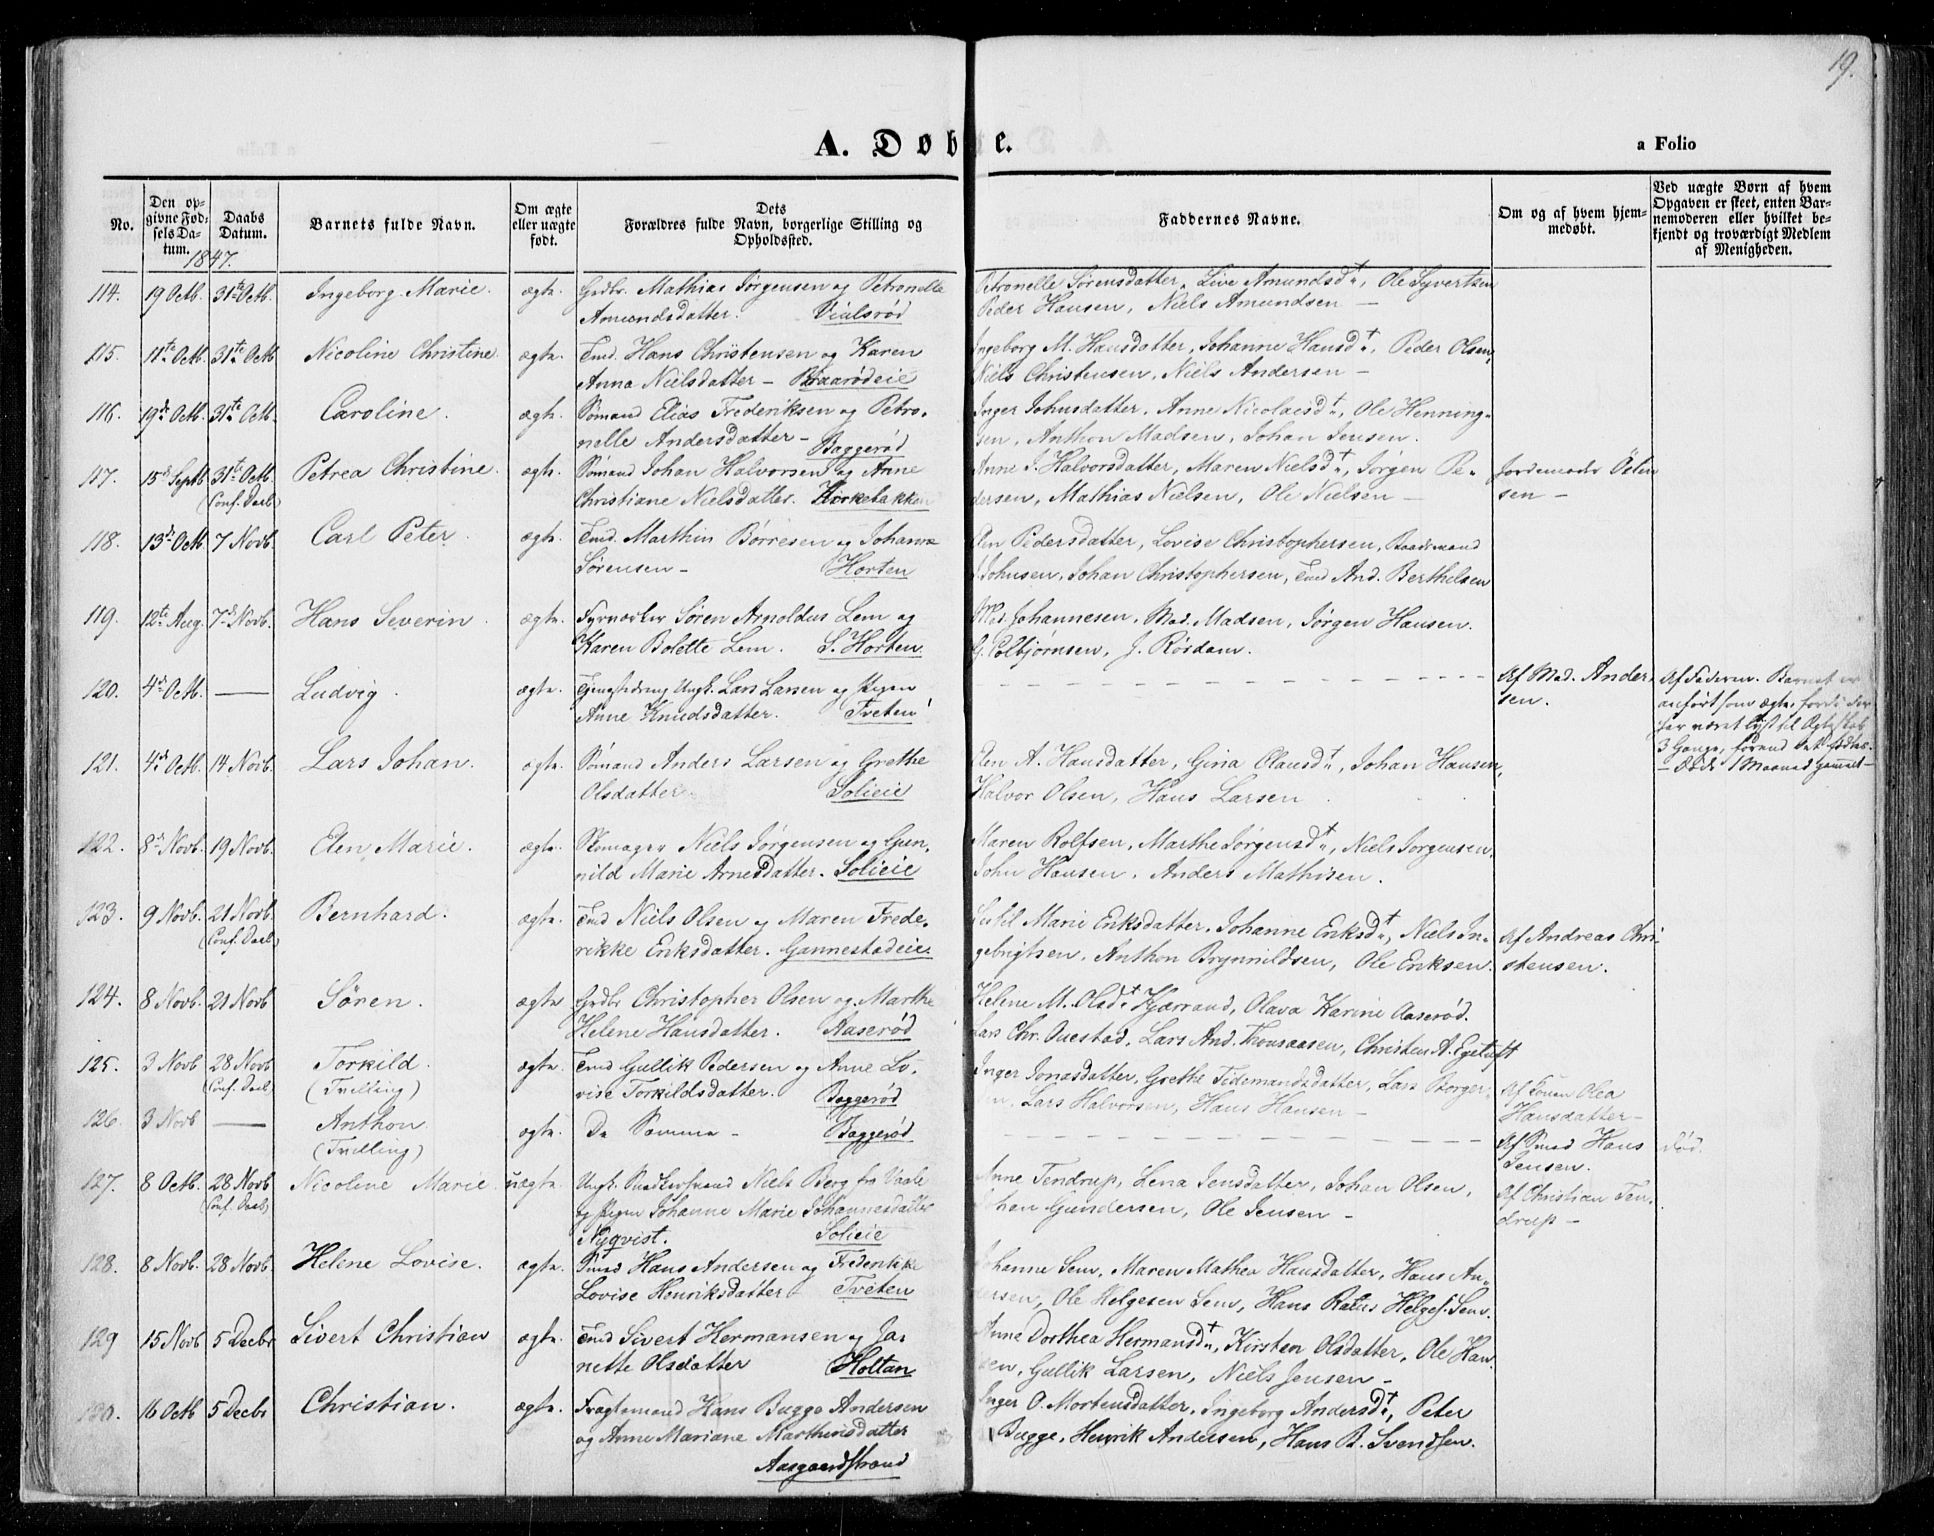 19.
A. Døbte.
a Folio
No.
Den opgivne Fødselsdatum.
Daabs Datum.
Barnets fulde Navn.
Om ægte eller uægte født.
Dets Forældres fulde Navn, borgerlige Stilling og Opholdssted.
Faddernes Navne.
Om og af hvem hjemmedøbt.
Ved uægte Børn af hvem Opgaven er skeet, enten Barnemoderen eller hvilket bekjendt og troværdigt Medlem af Menigheden.
1847.
114. 19 Octb. 31te Octb. Ingeborg Marie. ægte. Grdbr. Mathias Jørgensen og Petronelle
Amundsdatter. Vialsrød
Petronelle Sørensdatter, Live Amundsdtr, Ole Syvertsen
Peder Hansen, Niels Amundsen —
115. 11te Octb. 31te Octb Nicoline Christine. ægte. Tmd. Hans Christensen og Karen
Anna Nielsdatter – Braarødeie
Ingeborg M. Hansdatter, Johanne Hansdtr, Peder Olsen,
Niels Christensen, Niels Andersen —
116. 19de Octb. 31te Octb. Caroline. ægte. Sømand Elias Frederiksen og Petro-
nelle Andersdatter – Baggerød
Inger Johnsdatter, Anne Nicolaisdtr, Ole Henning-
sen, Anthon Madsen, Johan Jensen.
117. 15de Septb 31te Octb. (Conf. Daab) Petrea Christine. ægte. Sømand Johan Halvorsen og Anne
Christiane Nielsdatter. Korkelakken
Anne J. Halvorsdatter, Maren Nielsdtr, Jørgen Pe-
dersen, Mathias Nielsen, Ole Nielsen —
Jordemoder
sen –
118. 13de Octb 7 Novb. Carl Peter. ægte. Tmd. Marthin Børresen og Johanna
Sørensen – Horten
Elen Pedersdatter, Lovise Christophersen, Baadsmand
J. Johnsen, Johan Christophersen, Tmd And. Berthelsen
119. 12te Aug. 7de Novb. Hans Severin. ægte. Fyrværker Søren Arnoldus Lem og
Karen Bolette Lem. S. Horten.
Md. Johannesen, Mad. Madsen, Jørgen Hansen.
G. Polbjørnsen, J. Rørdam.
120. 4de Octb. — Ludvig. ægte. Ungk. Lars Larsen og Pigen
Anne Knudsdatter. Tveten
Af Mad. Ander-
sen.
Af Faderen. Barnet er
anført som ægte, fordi der
har været lyst til Ægteskab
3 Gange, førend det fødtes.
– Døde 1 Maaned gammelt –
121. 4de Octb. 14 Novb. Lars Johan. ægte. Sømand Anders Larsen og Grethe
Olsdatter. Solieie
Elen A. Hansdatter, Gina Olausdtr, Johan Hansen,
Halvor Olsen, Hans Larsen.
122. 8de Novb. 19 Novb. Elen Marie. ægte. Skomager Niels Jørgensen og Gun-
nild Marie Arnesdatter. Solieie
Maren Rolfsen, Marthe Jørgensdtr, Niels Jørgensen,
John Hansen, Anders Mathisen.
123. 9 Novb. 21 Novb. (Conf. Daab) Bernhard. ægte. Tmd Niels Olsen og Maren Frede-
rikke Eriksdatter. Gannestadeie.
Marie Eriksdatter, Johanne Eriksdtr, Niels In-
gebrigtsen, Anthon Brynnildsen, Ole Eriksen.
Af Andreas Chri-
stensen.
124. 8 Novb. 21 Novb Søren. ægte Grdbr Christopher Olsen og Marthe
Helene Hansdatter. Aaserød
Helene M. Olsdtr Kjærrand, Olava Karine Aaserød.
Lars Chr. Questad, Lars And. Thonsaasen, Christen A. Egetuft
125. 3 Novb 28 Novb (Conf. Daab) Torkild. (Tvilling) ægte. Tmd Gullik Pedersen og Anne Lo-
vise Torkildsdatter. Baggerød
Inger Jonasdatter, Grethe Tidemandsdatter, Lars Borger-
sen, Lars Halvorsen, Hans Hansen –
Af Olea
Hansdatter –
126. 3 Novb — Anthon. (Tvilling) ægte. De Samme – Baggerød
Af Smed Hans
Jensen.
død.
127. 8 Octb. 28 Novb (Conf. Daab) Nicoline Marie. uægte. Ungk. Niels Berg fra Vaale
og Pigen Johanne Marie Johannesdatter
Nyqvist. Solieie
Anne Tendrup, Lena Jensdatter, Johan Olsen,
Johan Gundersen, Ole Jensen –
Af Christian Ten-
drup –
128. 8 Novb. 28 Novb. Helene Lovise. ægte. Smed Hans Andersen og Frederikke
Lovise Henriksdatter Tveten
Johanne Sem, Maren Mathea Hansdatter, Hans An-
dersen, Ole Helgesen Sem, Hans Ratus Helges. Sem.
129 15 Novb 5 Decbr Sivert Christian ægte. Tmd Sivert Hermansen og Ja-
nette Olsdatter Holtan
Anne Dorthea Hermansdtr, Kirsten Olsdatter, Ole Han-
sen, Gullik Larsen, Niels Jensen –
130. 16 Octb 5 Decbr Christian. ægte. Fragtemand Hans Bugge Andersen
og Anne Mariane Marthinsdatter
Aasgaardstrand
Inger O. Mortensdatter, Ingeborg Andersdtr, Peter
Bugge, Henrik Andersen, Hans B. Svendsen.